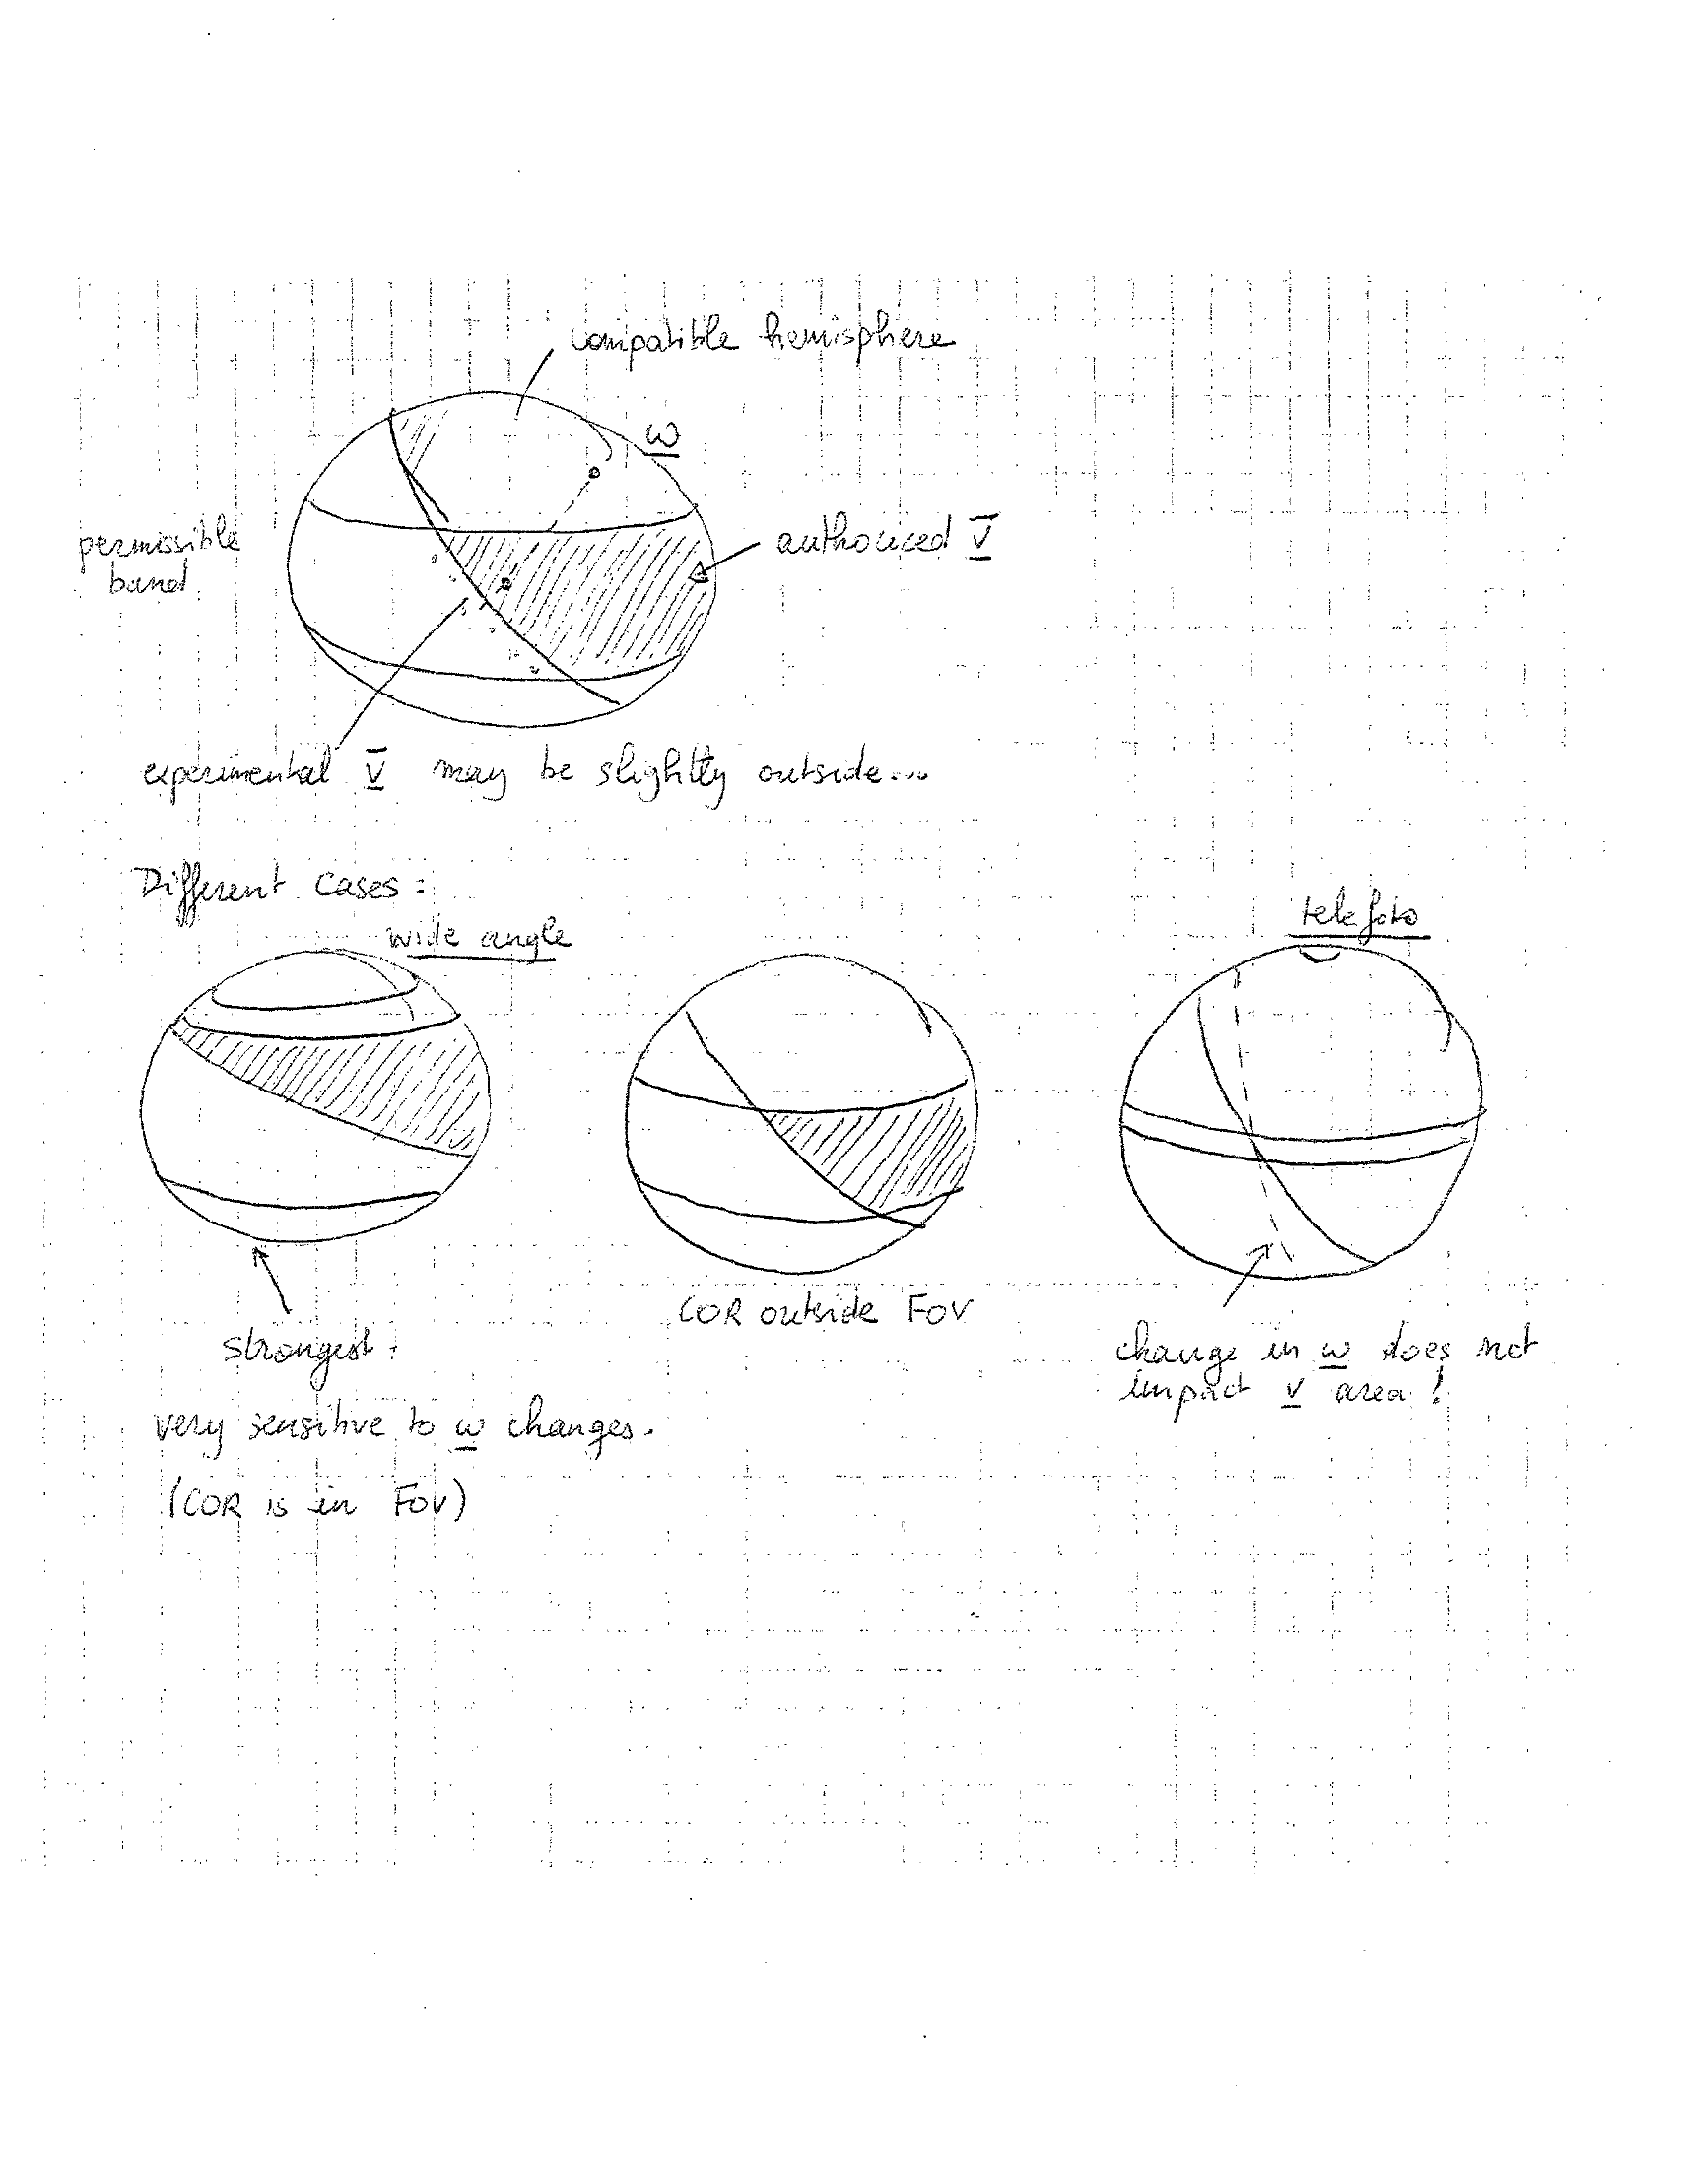 compatible hemisphere
w
permissible
band
authorized v
experimental v may be slightly outside...
Different cases :
wide angle
telefoto
COR outside FOV
strongest:
very sensitive to w changes.
(COR is in FOV)
change in w does not
impact v area !